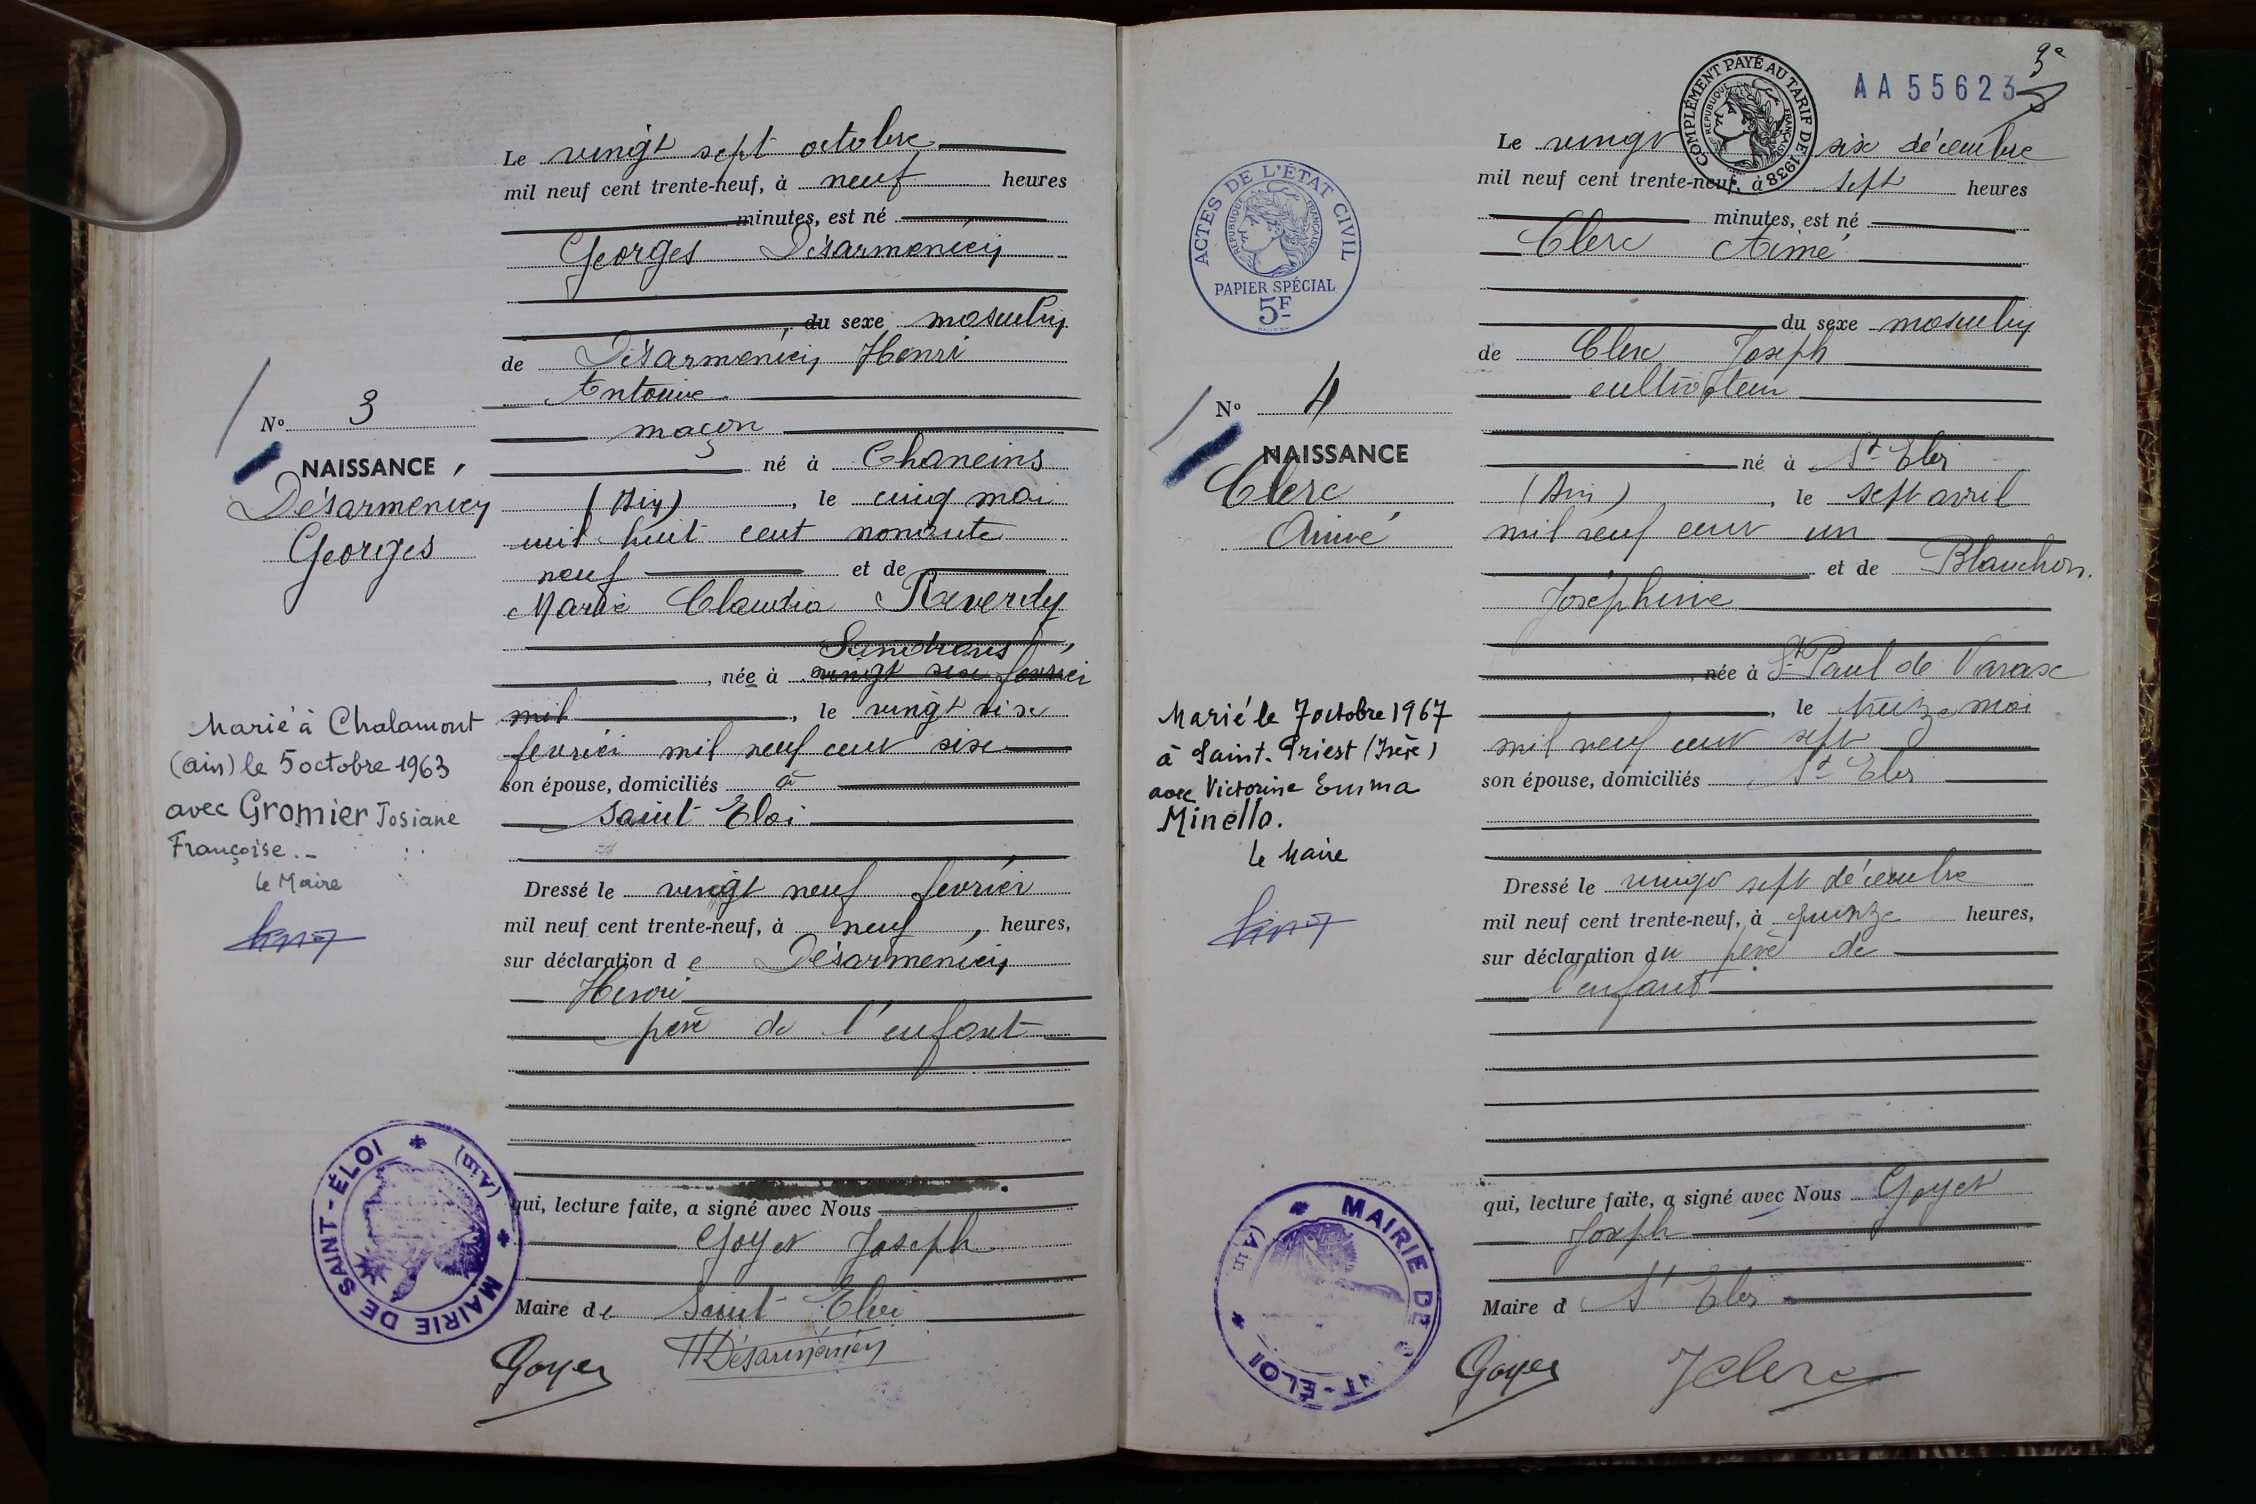 Le vingt sept octobre
mil neuf cent trente-neuf, à neuf heures
minutes, est né
Georges Désarménien
du sexe masculin
de Désarménien Henri
Antoine
maçon
N° 3
NAISSANCE
Désarménien
Georges
né à Chaneins
(Ain), le cinq mai
mil huit cent nonante
neuf et de
Marie Claudia Reverdy
Sandrans
, née à vingt six fevrier
mil, le vingt six
fevrier mil neuf cent six
son épouse, domiciliés à
Saint Eloi
Marié à Chalamont
(ain) le 5 octobre 1963
avec Gromier Josiane
Françoise.-
le Maire
Dressé le vingt neuf fevrier
mil neuf cent trente-neuf, à neuf, heures,
sur déclaration de Désarménien
Henri
père de l'enfant
qui, lecture faite, a signé avec Nous
Goyet Joseph
Maire de Saint Eloi
MAIRIE DE SAINT-ÉLOI
(Ain)
Goyet HDésarménien
3e
AA55623
COMPLÉMENT PAYÉ AU TARIF DE 1938
RÉPUBLIQUE FRANÇAISE
ACTES DE L'ÉTAT CIVIL
RÉPUBLIQUE FRANÇAISE
PAPIER SPÉCIAL
5F
Le vingt six décembre
mil neuf cent trente-neuf, à sept heures
minutes, est né
Clerc Aimé
du sexe masculin
de Clerc Joseph
cultivateur
N° 4
NAISSANCE
Clerc
Aimé
né à St Eloi
(Ain), le sept avril
mil neuf cent un
et de Blanchon
Joséphine
, née à St Paul de Varax
, le treize mai
mil neuf cent sept
son épouse, domiciliés St Eloi
Marié le 7 octobre 1967
à Saint-Priest (Isère)
avec Victorine Emma
Minello.
le Maire
Dressé le vingt sept décembre
mil neuf cent trente-neuf, à quinze heures,
sur déclaration du père de
l'enfant
qui, lecture faite, a signé avec Nous Goyet
Joseph
Maire d St Eloi
MAIRIE DE SAINT-ÉLOI
(Ain)
Goyet JClerc